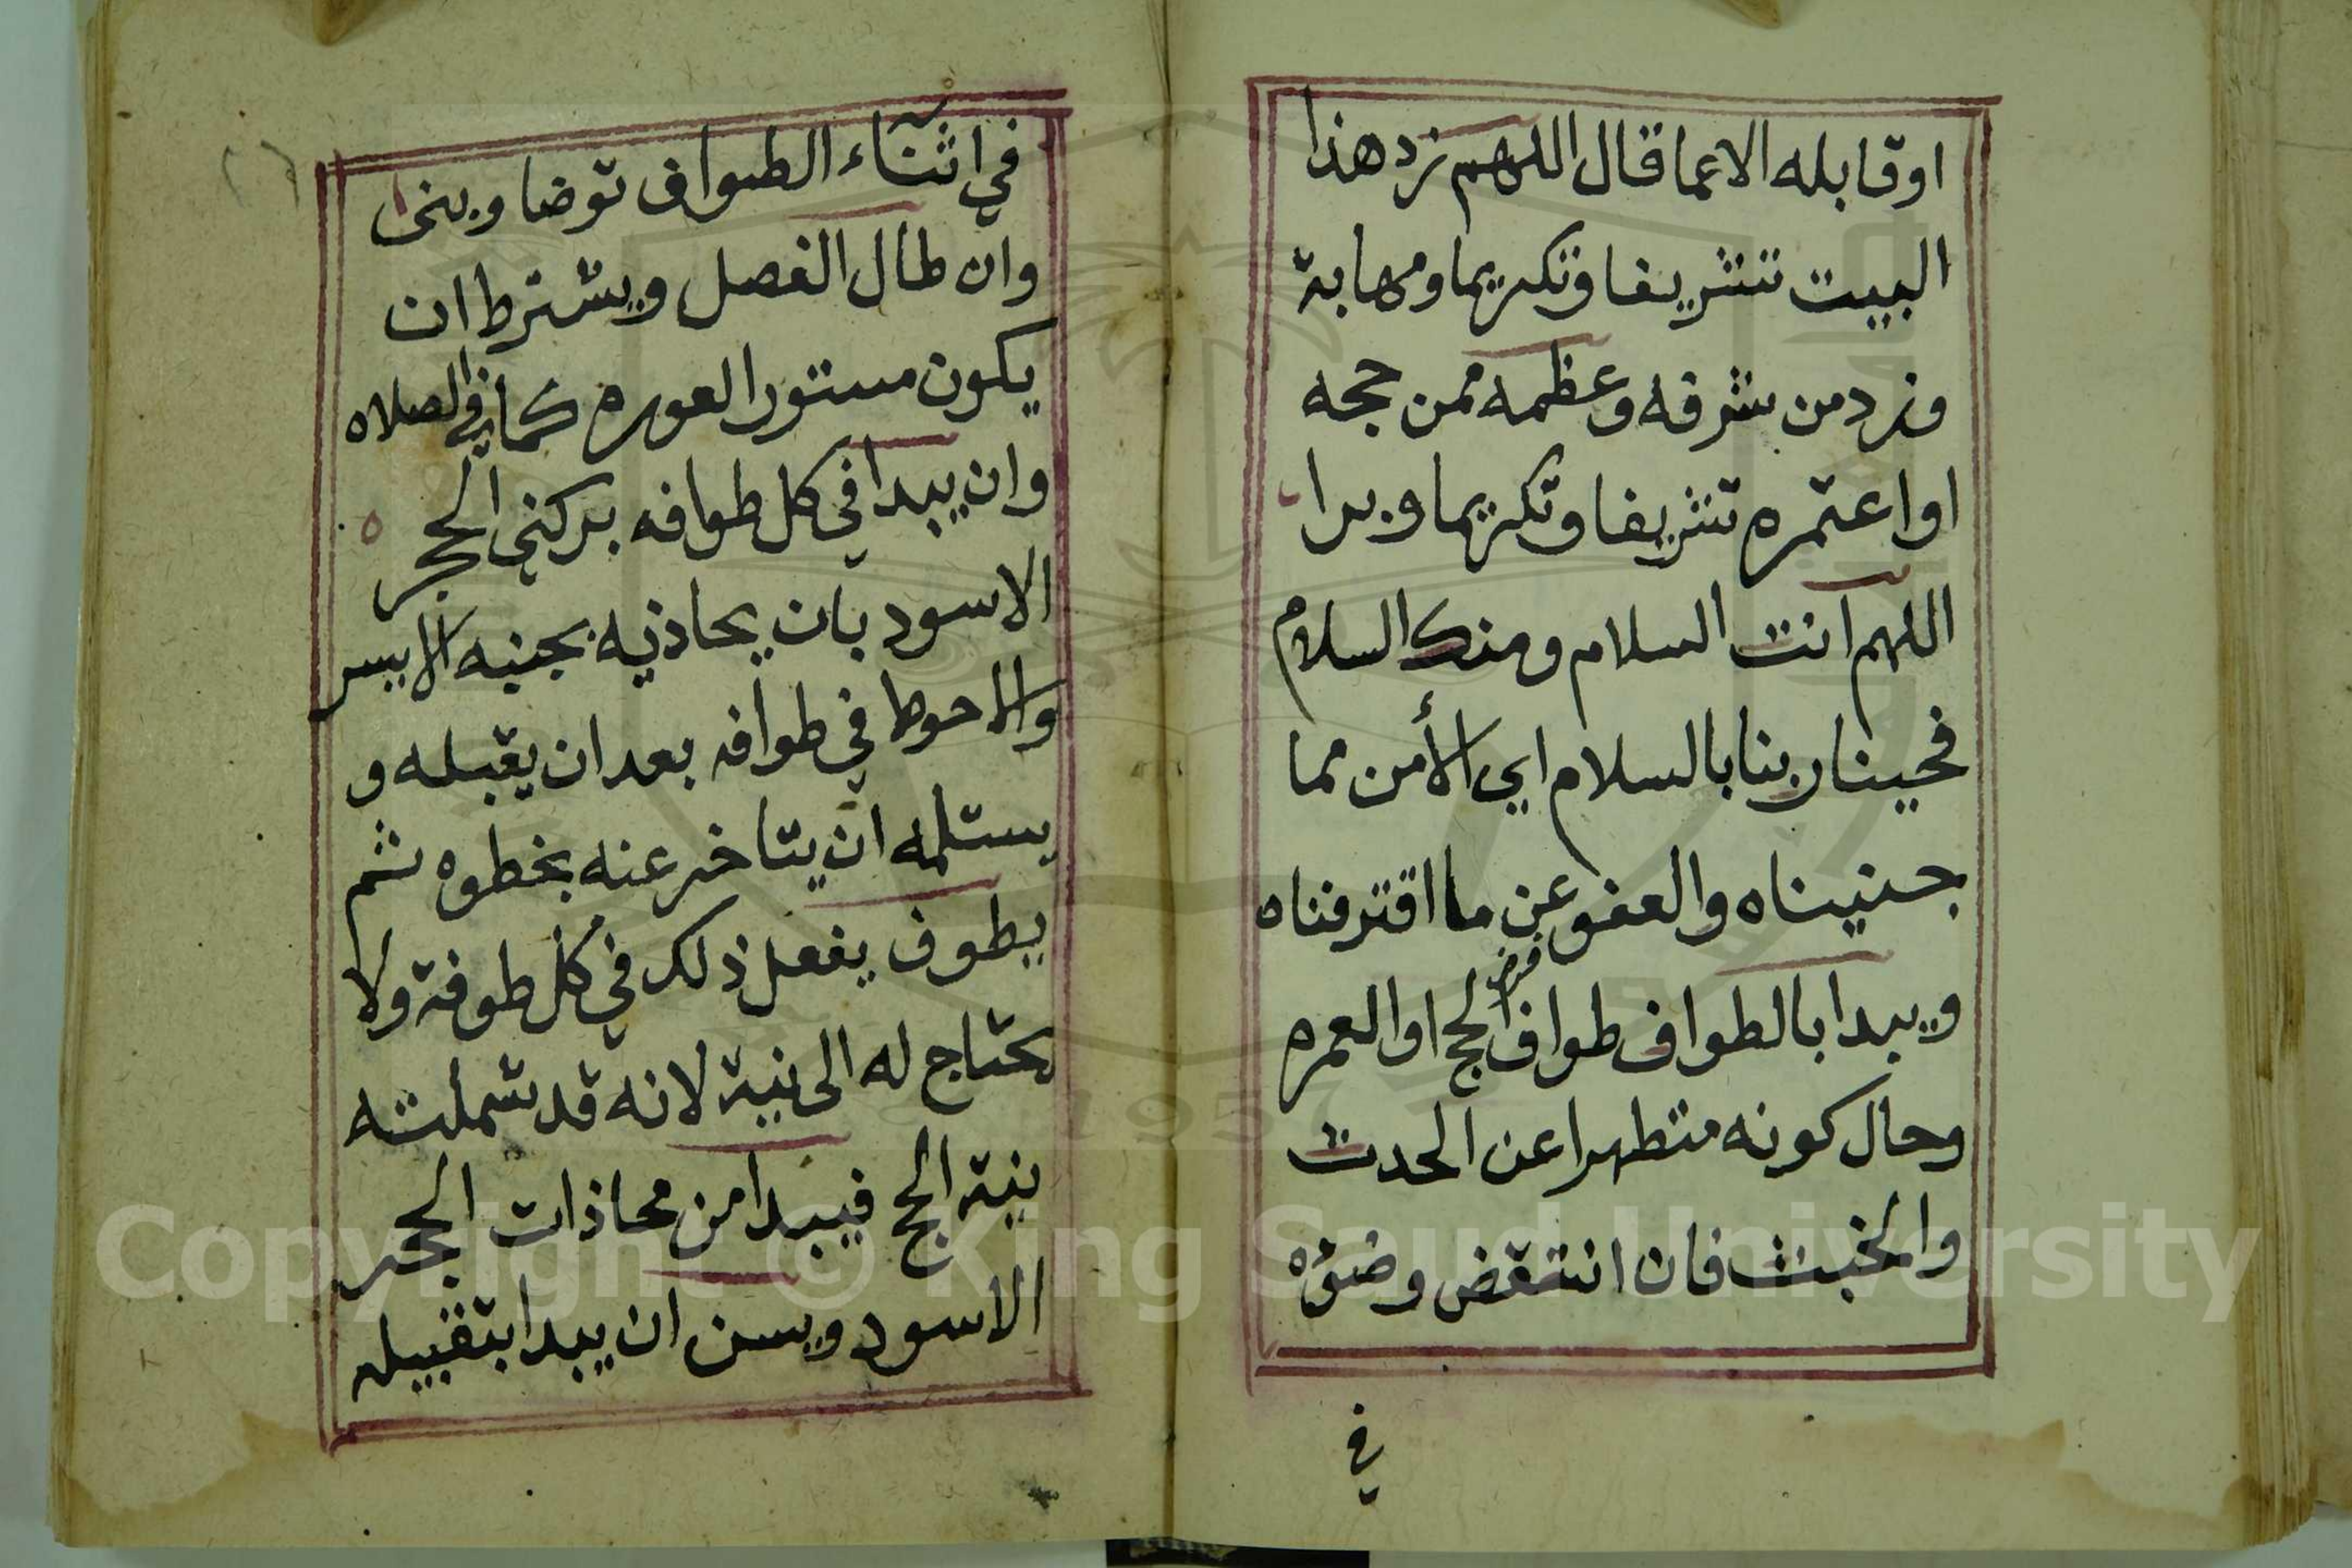 اوقابله الاعما قال اللهم زد هذا
البيت تشريفا وتكريما ومهابة
وزد من شرفه وعظمه ممن حجه
او اعتمره تشريفا وتكريما وبرا
اللهم انت السلام ومنك السلام
فحينا ربنا بالسلام اي الأمن مما
جنيناه والعفو عن ما اقترفناه
ويبدا بالطواف طواف فرض الحج او العمره
وحال كونه متطهرا عن الحدث
والخبث فان انتقض وضؤه
في
في اثنآء الطواف توضا وبنى
وان طال الفصل ويشترط ان
يكون مستور العوره كما في الصلاه
وان يبدا في كل طوافه بركني الحجر
الاسود بان يحاذيه بجنبه الايسر
والاحوط في طوافه بعد ان يقبله و
يستلمه ان يتاخر عنه بخطوه ثم
يطوف يفعل ذلك في كل طوفة ولا
يحتاج له الى نية لانه قد شملته
نية الحج فيبدا من محاذات الحجر
الاسود ويسن ان يبدا بتقبيله
Copyright © King Saud University
1957